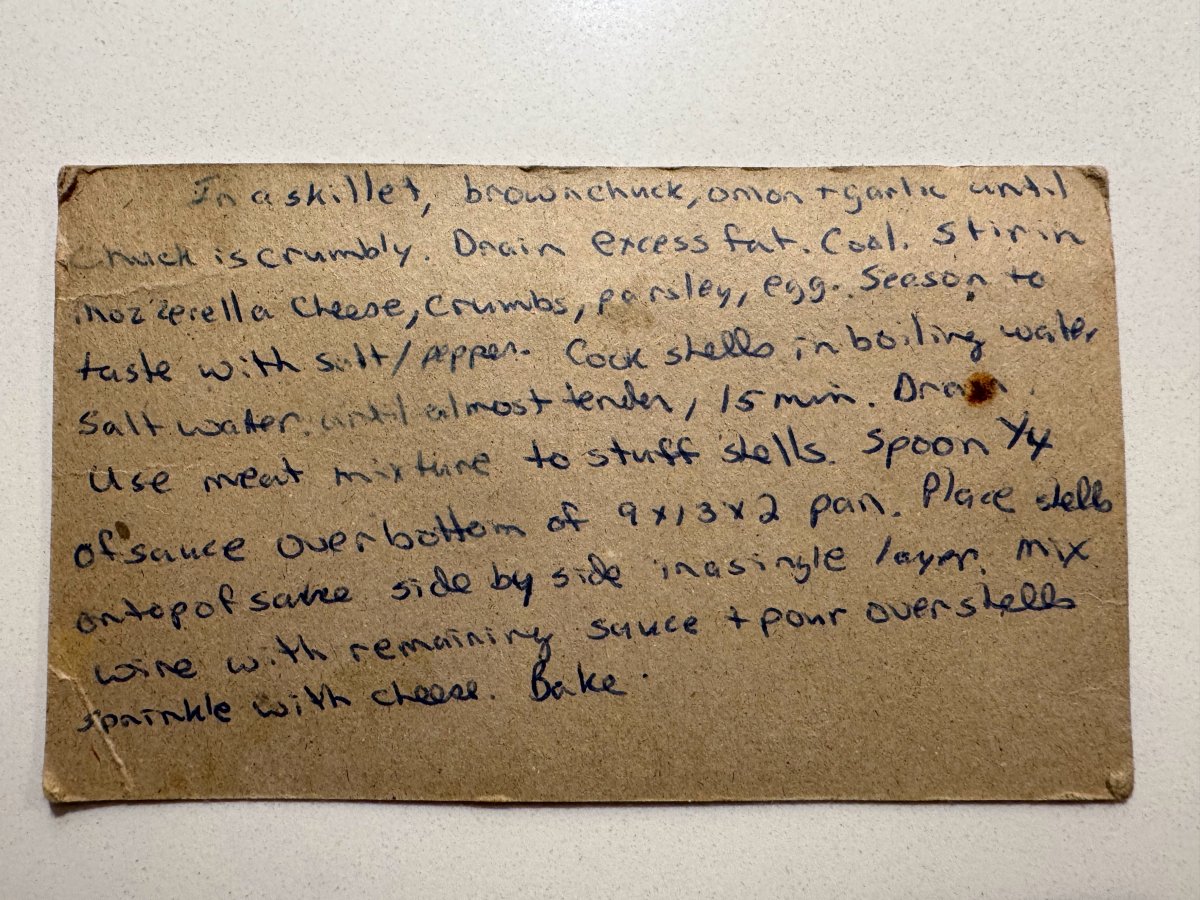 In a skillet, brown chuck, onion + garlic until
Chuck is crumbly. Drain excess fat. Cool. Stir in
Mozzerella Cheese, Crumbs, parsley, egg. Season to
taste with salt/pepper. Cook shells in boiling water
Salt water until almost tender, 15 min. Drain.
Use meat mixture to stuff shells. Spoon 1/4
of sauce over bottom of 9x13x2 pan. Place shells
on top of sauce side by side in a single layer. Mix
wine with remaining sauce + pour over shells
sprinkle with cheese. Bake.